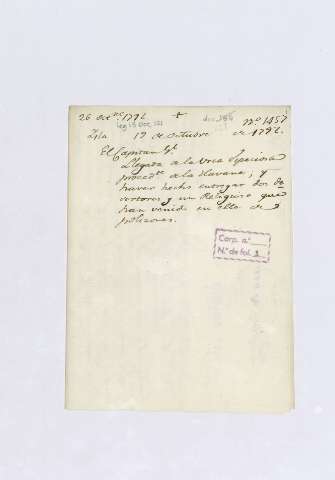 26 Oct.re 1792 +
Leg 15 Doc, 121 doc. 186 Nº 1457
Isla 19 de Octubre de 1792.
El Capitan Gl.
Llegada a la Urca Speciosa
proced.te de la Havana, y
haver hecho entregar dos de
sertores, y un Religioso que
han venido en ella de
polizones.
Carp. n.º
N.º de fol. 3